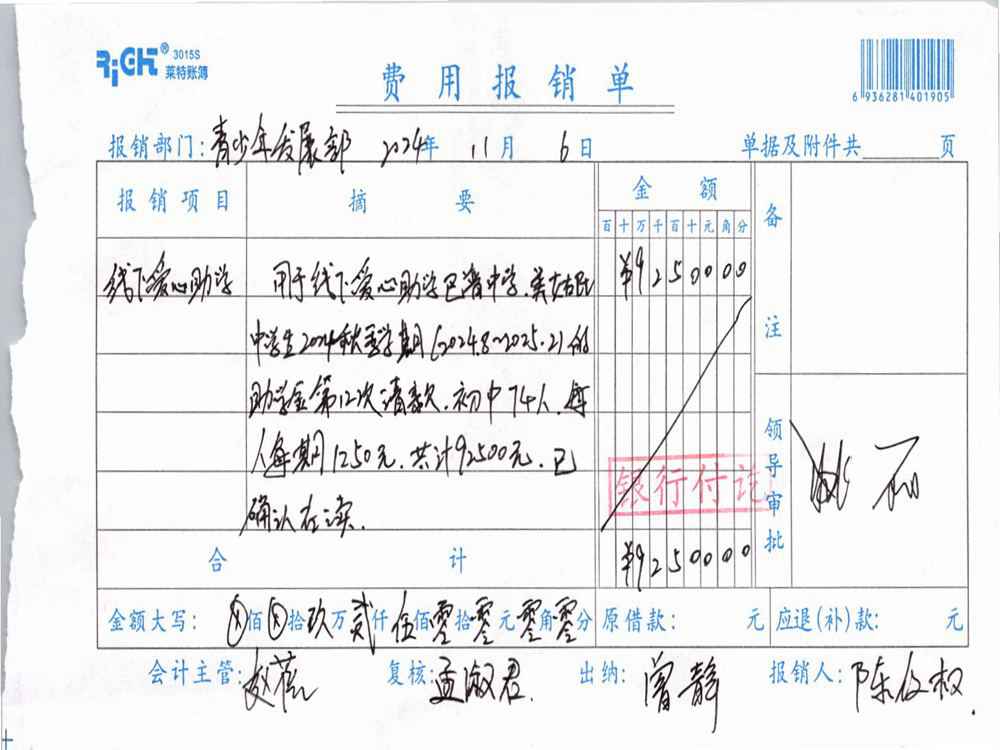 RiGHT® 3015S
莱特账簿
费用报销单
6 936281 401905
报销部门：青少年发展部 2024年 11月 6日 单据及附件共 页
报销项目 摘要 金额 备注
百十万千百十元角分
线下爱心助学 用于线下爱心助学巴青中学、 ¥9250000
中学生2024秋季学期(2024.8~2025.2)的
助学金第12次请款.初中74人.每
人每期1250元.共计92500元.已
确认在读.
银行付讫
领导审批
合计 ¥9250000
金额大写：ⓧ佰ⓧ拾玖万贰仟伍佰零拾零元零角零分 原借款： 元 应退(补)款： 元
会计主管： 复核：孟淑君. 出纳：曾静 报销人：陈